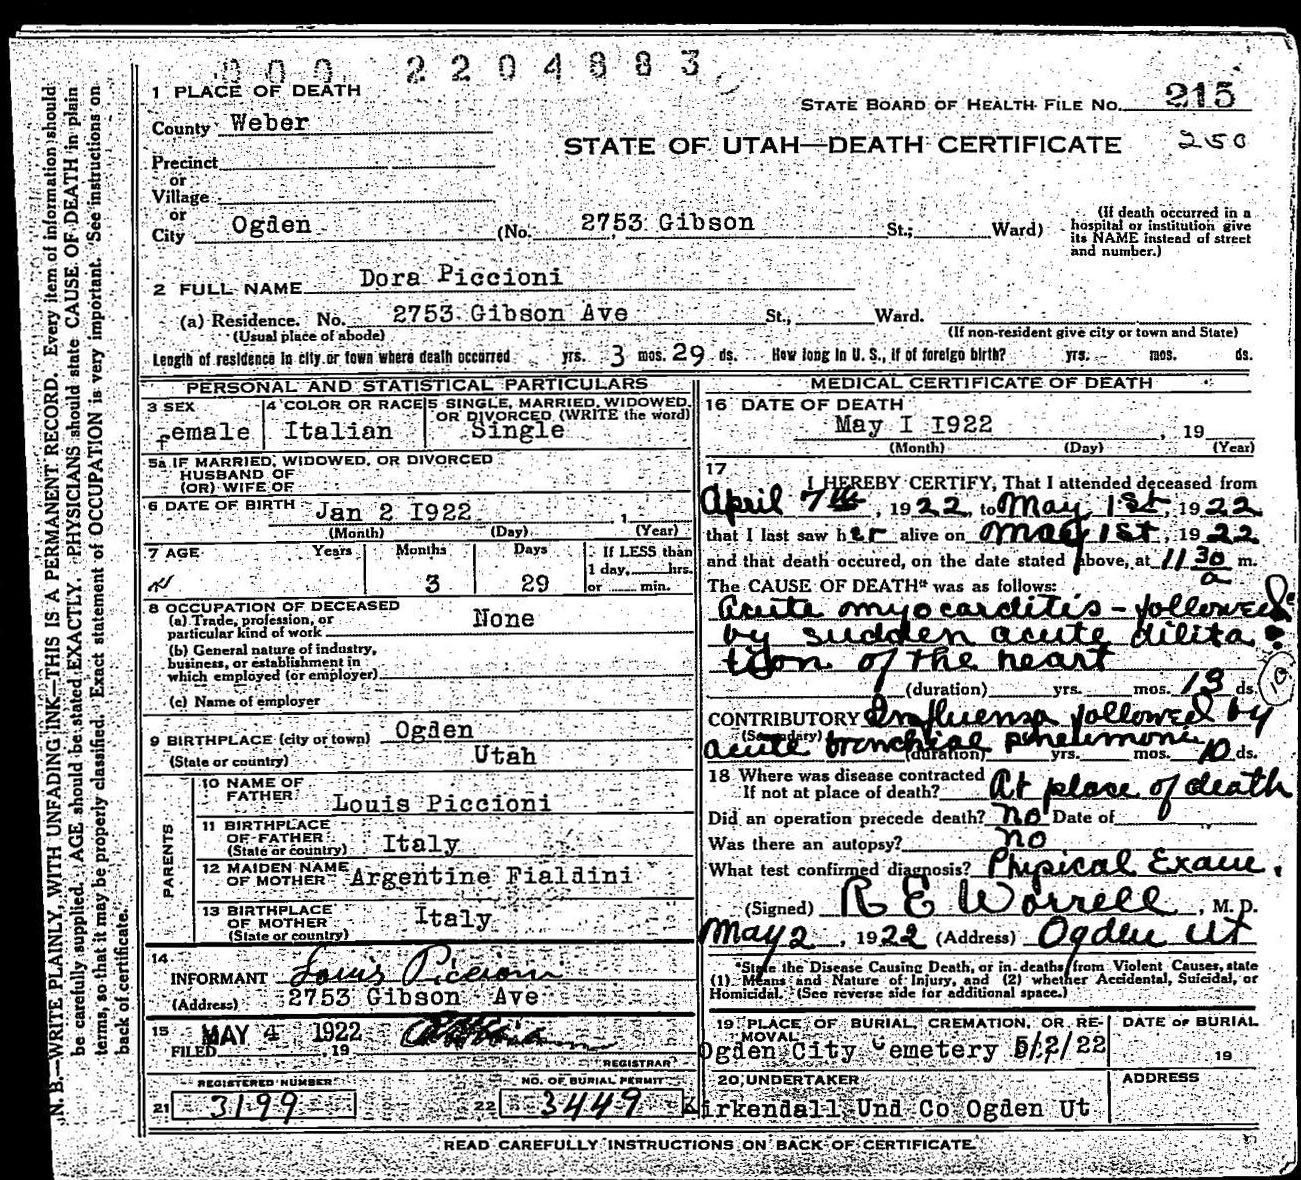 000 2204883
1 PLACE OF DEATH
STATE BOARD OF HEALTH FILE NO. 215
County Weber
STATE OF UTAH—DEATH CERTIFICATE 250
Precinct
or
Village
or
City Ogden (No. 2753 Gibson St.; Ward)
(If death occurred in a
hospital or institution give
its NAME instead of street
and number.)
2 FULL NAME Dora Piccioni
(a) Residence. No. 2753 Gibson Ave St., Ward.
(Usual place of abode) (If non-resident give city or town and State)
Length of residence in city or town where death occurred yrs. 3 mos. 29 ds. How long in U. S., if of foreign birth? yrs. mos. ds.
PERSONAL AND STATISTICAL PARTICULARS
3 SEX female
4 COLOR OR RACE Italian
5 SINGLE, MARRIED, WIDOWED,
OR DIVORCED (WRITE the word)
Single
5a IF MARRIED, WIDOWED, OR DIVORCED
HUSBAND OF
(OR) WIFE OF
6 DATE OF BIRTH Jan 2 I922 , 1
(Month) (Day) (Year)
7 AGE Years Months Days If LESS than
1 day, hrs.
3 29 or min.
8 OCCUPATION OF DECEASED
(a) Trade, profession, or
particular kind of work None
(b) General nature of industry,
business, or establishment in
which employed (or employer)
(c) Name of employer
9 BIRTHPLACE (city or town) Ogden
(State or country) Utah
PARENTS
10 NAME OF
FATHER Louis Piccioni
11 BIRTHPLACE
OF FATHER
(State or country) Italy
12 MAIDEN NAME
OF MOTHER Argentine Fialdini
13 BIRTHPLACE
OF MOTHER
(State or country) Italy
14
INFORMANT Louis Piccioni
(Address) 2753 Gibson Ave
15 MAY 4 1922
FILED , 19
REGISTRAR
REGISTERED NUMBER
21 3199
NO. OF BURIAL PERMIT
22 3449
MEDICAL CERTIFICATE OF DEATH
16 DATE OF DEATH
May I I922 , 19
(Month) (Day) (Year)
17
I HEREBY CERTIFY, That I attended deceased from
April 7th, 1922, to May 1st, 1922
that I last saw her alive on May 1st, 1922
and that death occured, on the date stated above, at 11 30 a m.
The CAUSE OF DEATH* was as follows:
Acute myocarditis - followed
by sudden acute dilita
tion of the heart
(duration) yrs. mos. 13 ds.
CONTRIBUTORY Influenza followed by
(Secondary)
acute bronchial pneumonia
(duration) yrs. mos. 10 ds.
18 Where was disease contracted
If not at place of death? At place of death
Did an operation precede death? no Date of
Was there an autopsy? no
What test confirmed diagnosis? Physical Exam.
(Signed) R E Worrell, M. D.
May 2, 1922 (Address) Ogden Ut
*State the Disease Causing Death, or in deaths from Violent Causes, state
(1) Means and Nature of Injury, and (2) whether Accidental, Suicidal, or
Homicidal. (See reverse side for additional space.)
19 PLACE OF BURIAL, CREMATION, OR RE-
MOVAL
Ogden City Cemetery 5/2/22
DATE OF BURIAL
19
20 UNDERTAKER
Kirkendall Und Co Ogden Ut
ADDRESS
READ CAREFULLY INSTRUCTIONS ON BACK OF CERTIFICATE
N. B.—WRITE PLAINLY, WITH UNFADING INK—THIS IS A PERMANENT RECORD. Every item of information should
be carefully supplied. AGE should be stated EXACTLY. PHYSICIANS should state CAUSE OF DEATH in plain
terms, so that it may be properly classified. Exact statement of OCCUPATION is very important. See instructions on
back of certificate.